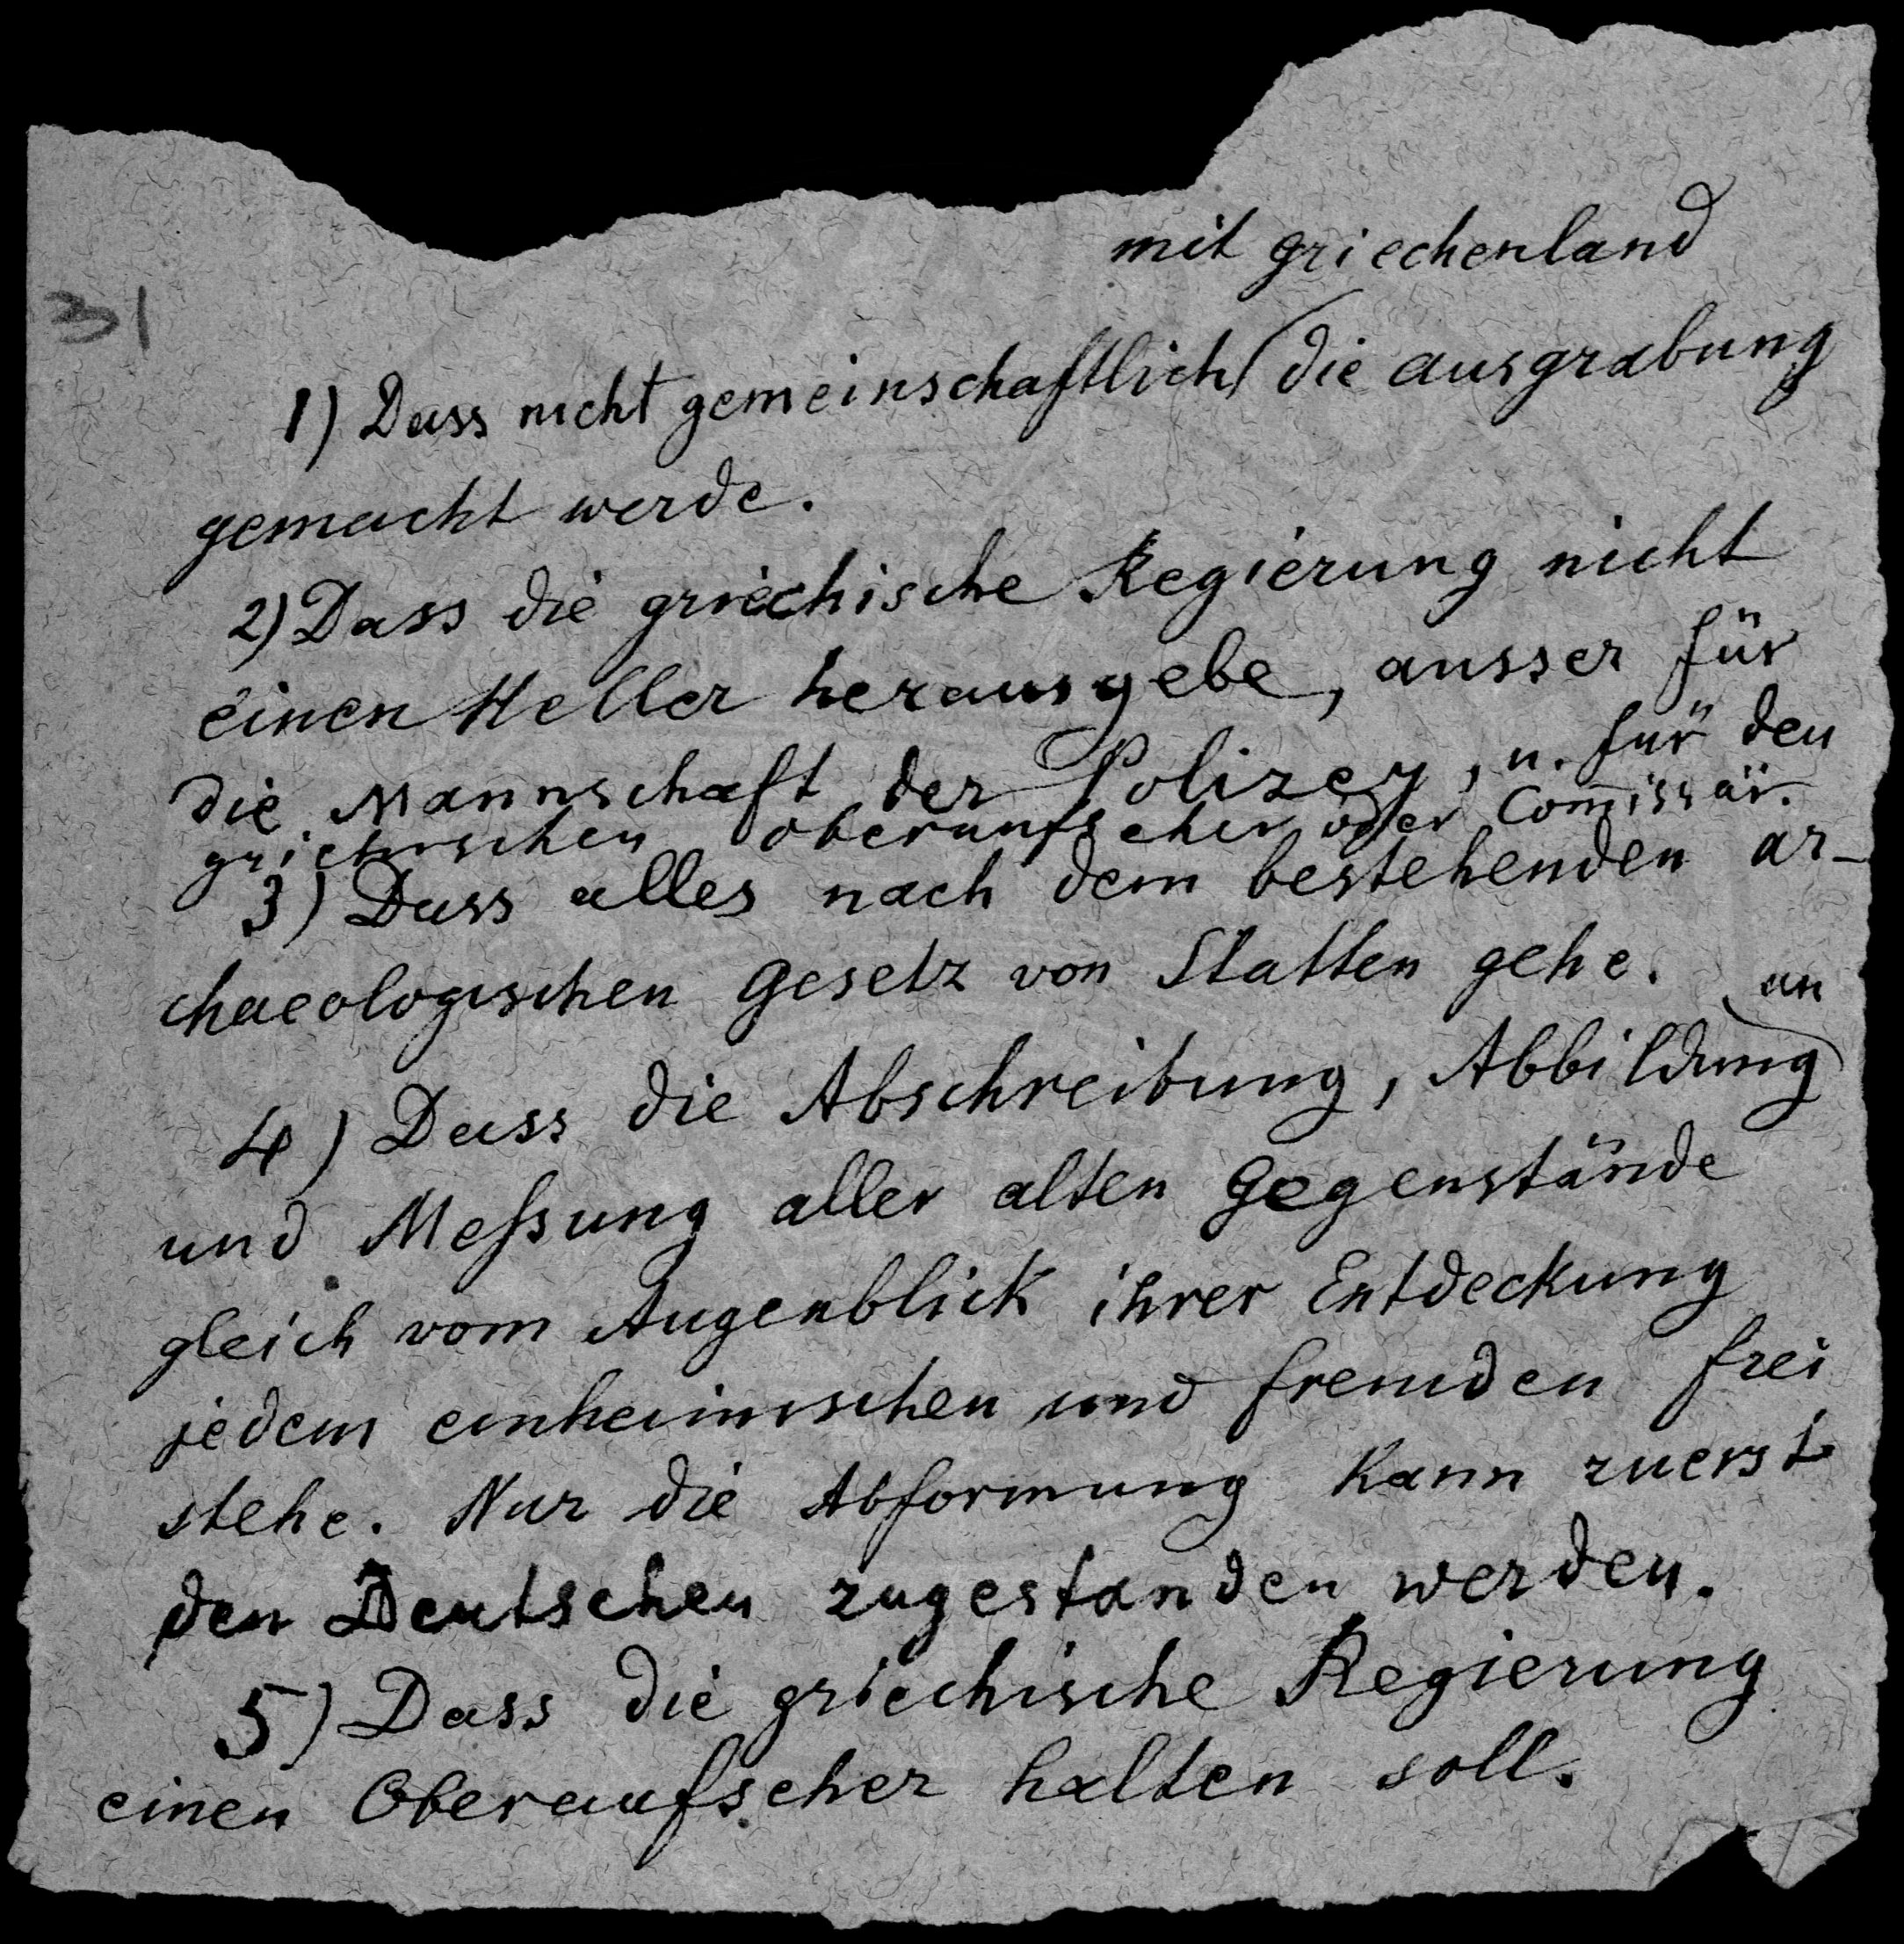 mit griechenland
31
1) Dass nicht gemeinschaftlich die ausgrabung
gemacht werde.
2) Dass die griechische Regierung nicht
einen Heller herausgebe, ausser für
die Mannschaft der Polizey, u. für den
griechischen oberaufseher oder Com̄issär.
3) Dass alles nach dem bestehenden ar-
chaeologischen Gesetz von Statten gehe.
an
4) Dass die Abschreibung, Abbildung
und Meſsung aller alten Gegenstände
gleich vom Augenblick ihrer Entdeckung
jedem einheimischen und fremden frei
stehe. Nur die Abformung kann zuerst
den Deutschen zugestanden werden.
5) Dass die griechische Regierung
einen Oberaufseher halten soll.